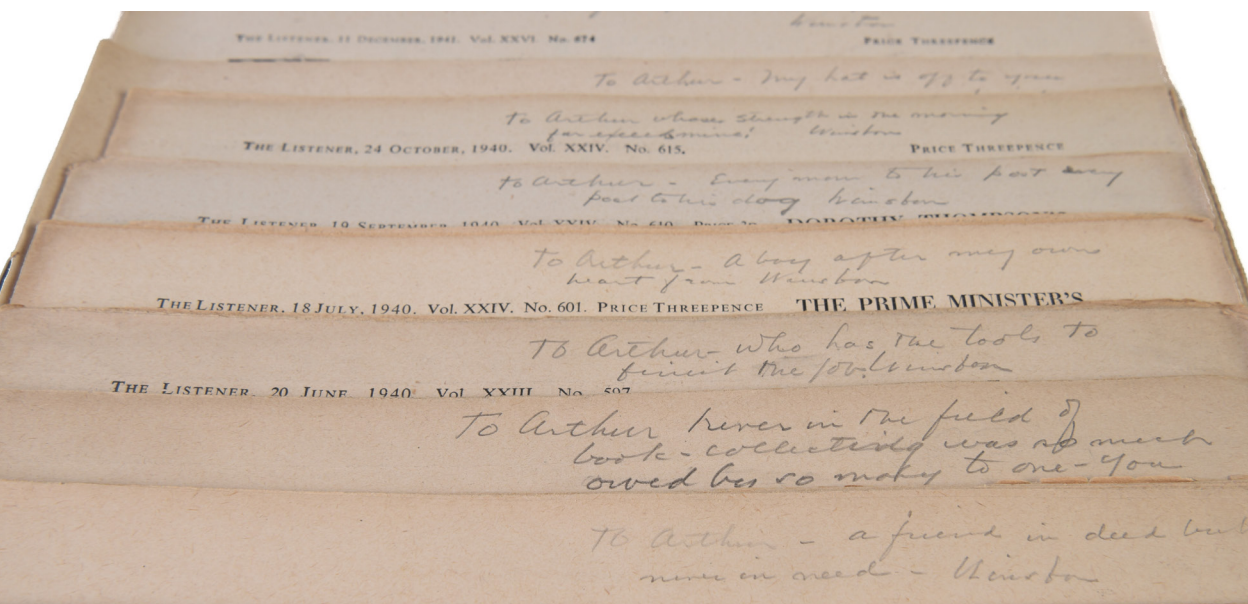 Winston
THE LISTENER, 11 DECEMBER, 1941. Vol. XXVI. No. 674 PRICE THREEPENCE
To Arthur - My hat is off to you
To Arthur whose strength in the morning
far exceeds mine! Winston
THE LISTENER, 24 OCTOBER, 1940. Vol. XXIV. No. 615. PRICE THREEPENCE
To Arthur - Every man to his post every
post to his dog Winston
THE LISTENER, 19 SEPTEMBER, 1940. Vol. XXIV. No. 610. PRICE 3D. DOROTHY THOMPSON'S
To Arthur - A boy after my own
heart from Winston
THE LISTENER, 18 JULY, 1940. Vol. XXIV. No. 601. PRICE THREEPENCE THE PRIME MINISTER'S
To Arthur - who has the tools to
finish the job! Winston
THE LISTENER, 20 JUNE, 1940. Vol. XXIII. No. 597
To Arthur Never in the field of
book-collecting was so much
owed by so many to one - you
To Arthur - a friend in deed but
never in need - Winston